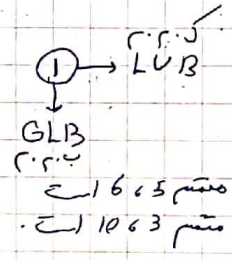 ک.م.م
1 → LUB
GLB
ب.م.م
متمم 5 ، 6 است
متمم 3 ، 10 است.